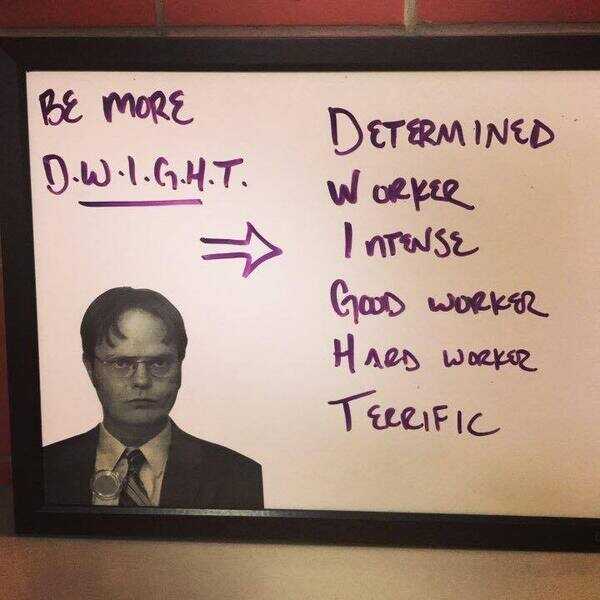 BE MORE
D.W.I.G.H.T.
DETERMINED
WORKER
INTENSE
GOOD WORKER
HARD WORKER
TERRIFIC